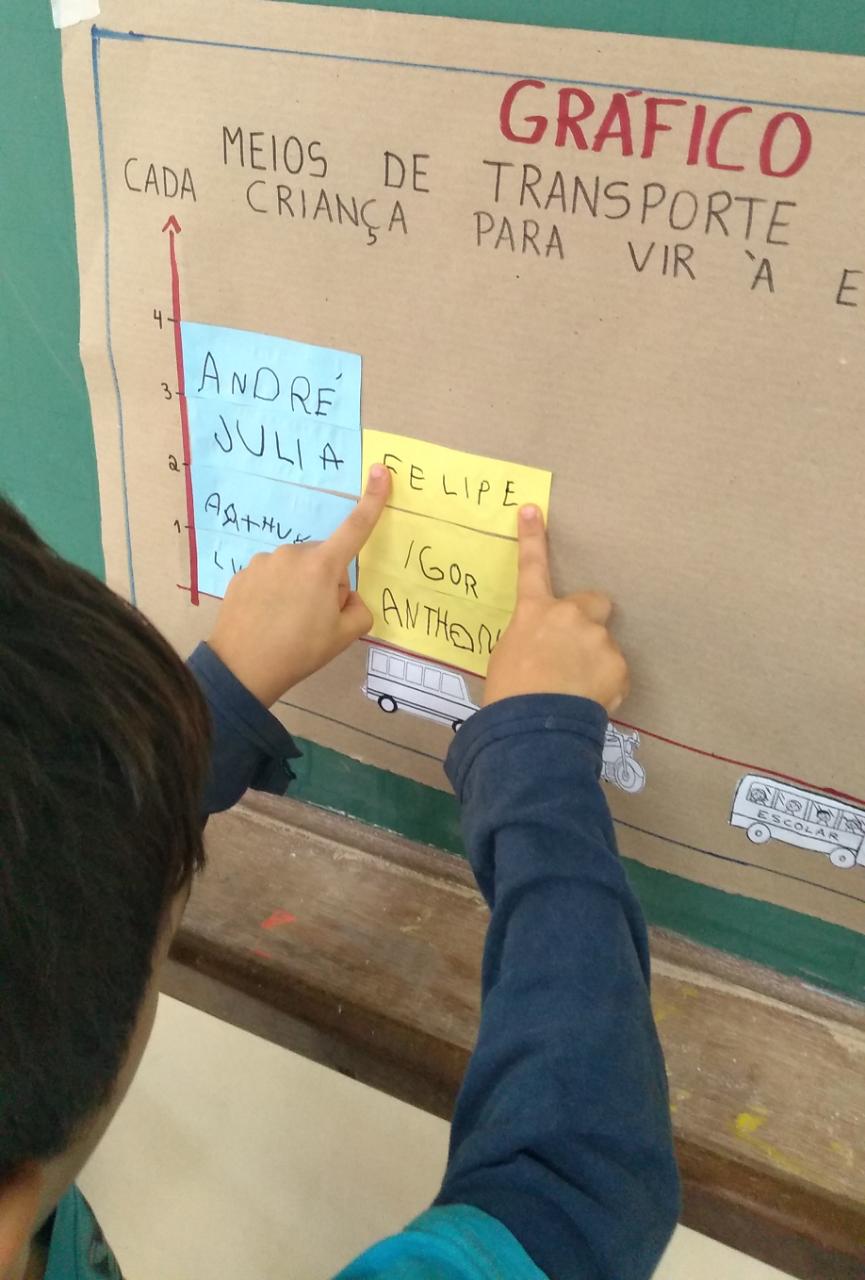 GRÁFICO
MEIOS DE TRANSPORTE
CADA CRIANÇA PARA VIR À E
4
3
2
1
ANDRÉ
JULIA
FELIPE
IGOR
ESCOLAR